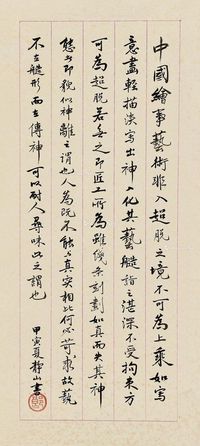 中國繪事藝術非入超脫之境不可為上乘如寫
意畫輕描淡寫出神入化其藝髓詣之湛深不受拘束方
可為超脫若無之即匠工所為雖維妙刻劃如真而失其神
態此即貌似神離之謂也人為既不能與真實相比何必苛求故藝
不在髓形而在傳神可以耐人尋味此之謂也
甲寅夏靜山書